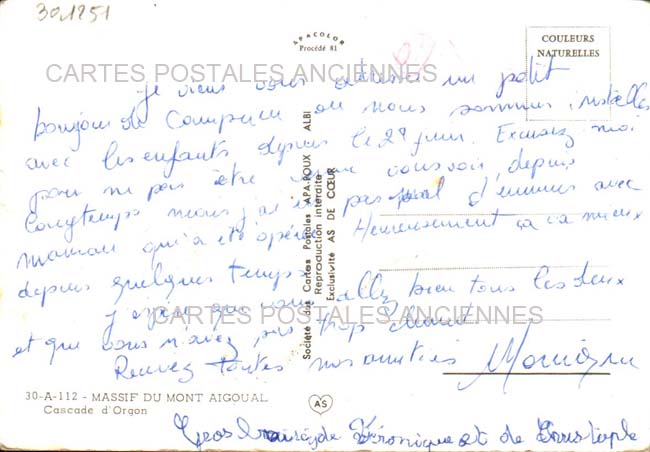 301251
APACOLOR
Procédé 81
COULEURS
NATURELLES
CARTES POSTALES ANCIENNES
Je viens vous adresser un petit
bonjour de Camprieu où nous sommes installés
avec les enfants depuis le 29 juin. Excusez moi
pour ne pas être venu vous voir, depuis
longtemps mais j'ai eu pas mal d'ennuis avec
maman qui a été opérée. Heureusement ça va mieux
depuis quelques temps.
J'espère que vous allez bien tous les deux
CARTES POSTALES ANCIENNES
et que vous n'avez pas trop chaud
Recevez toutes nos amitiés
Société des Cartes Postales APA-POUX ALBI
Reproduction interdite
Exclusivité AS DE CŒUR
30-A-112 - MASSIF DU MONT AIGOUAL
Cascade d'Orgon
AS
Gros baisers de Véronique et de Christophe